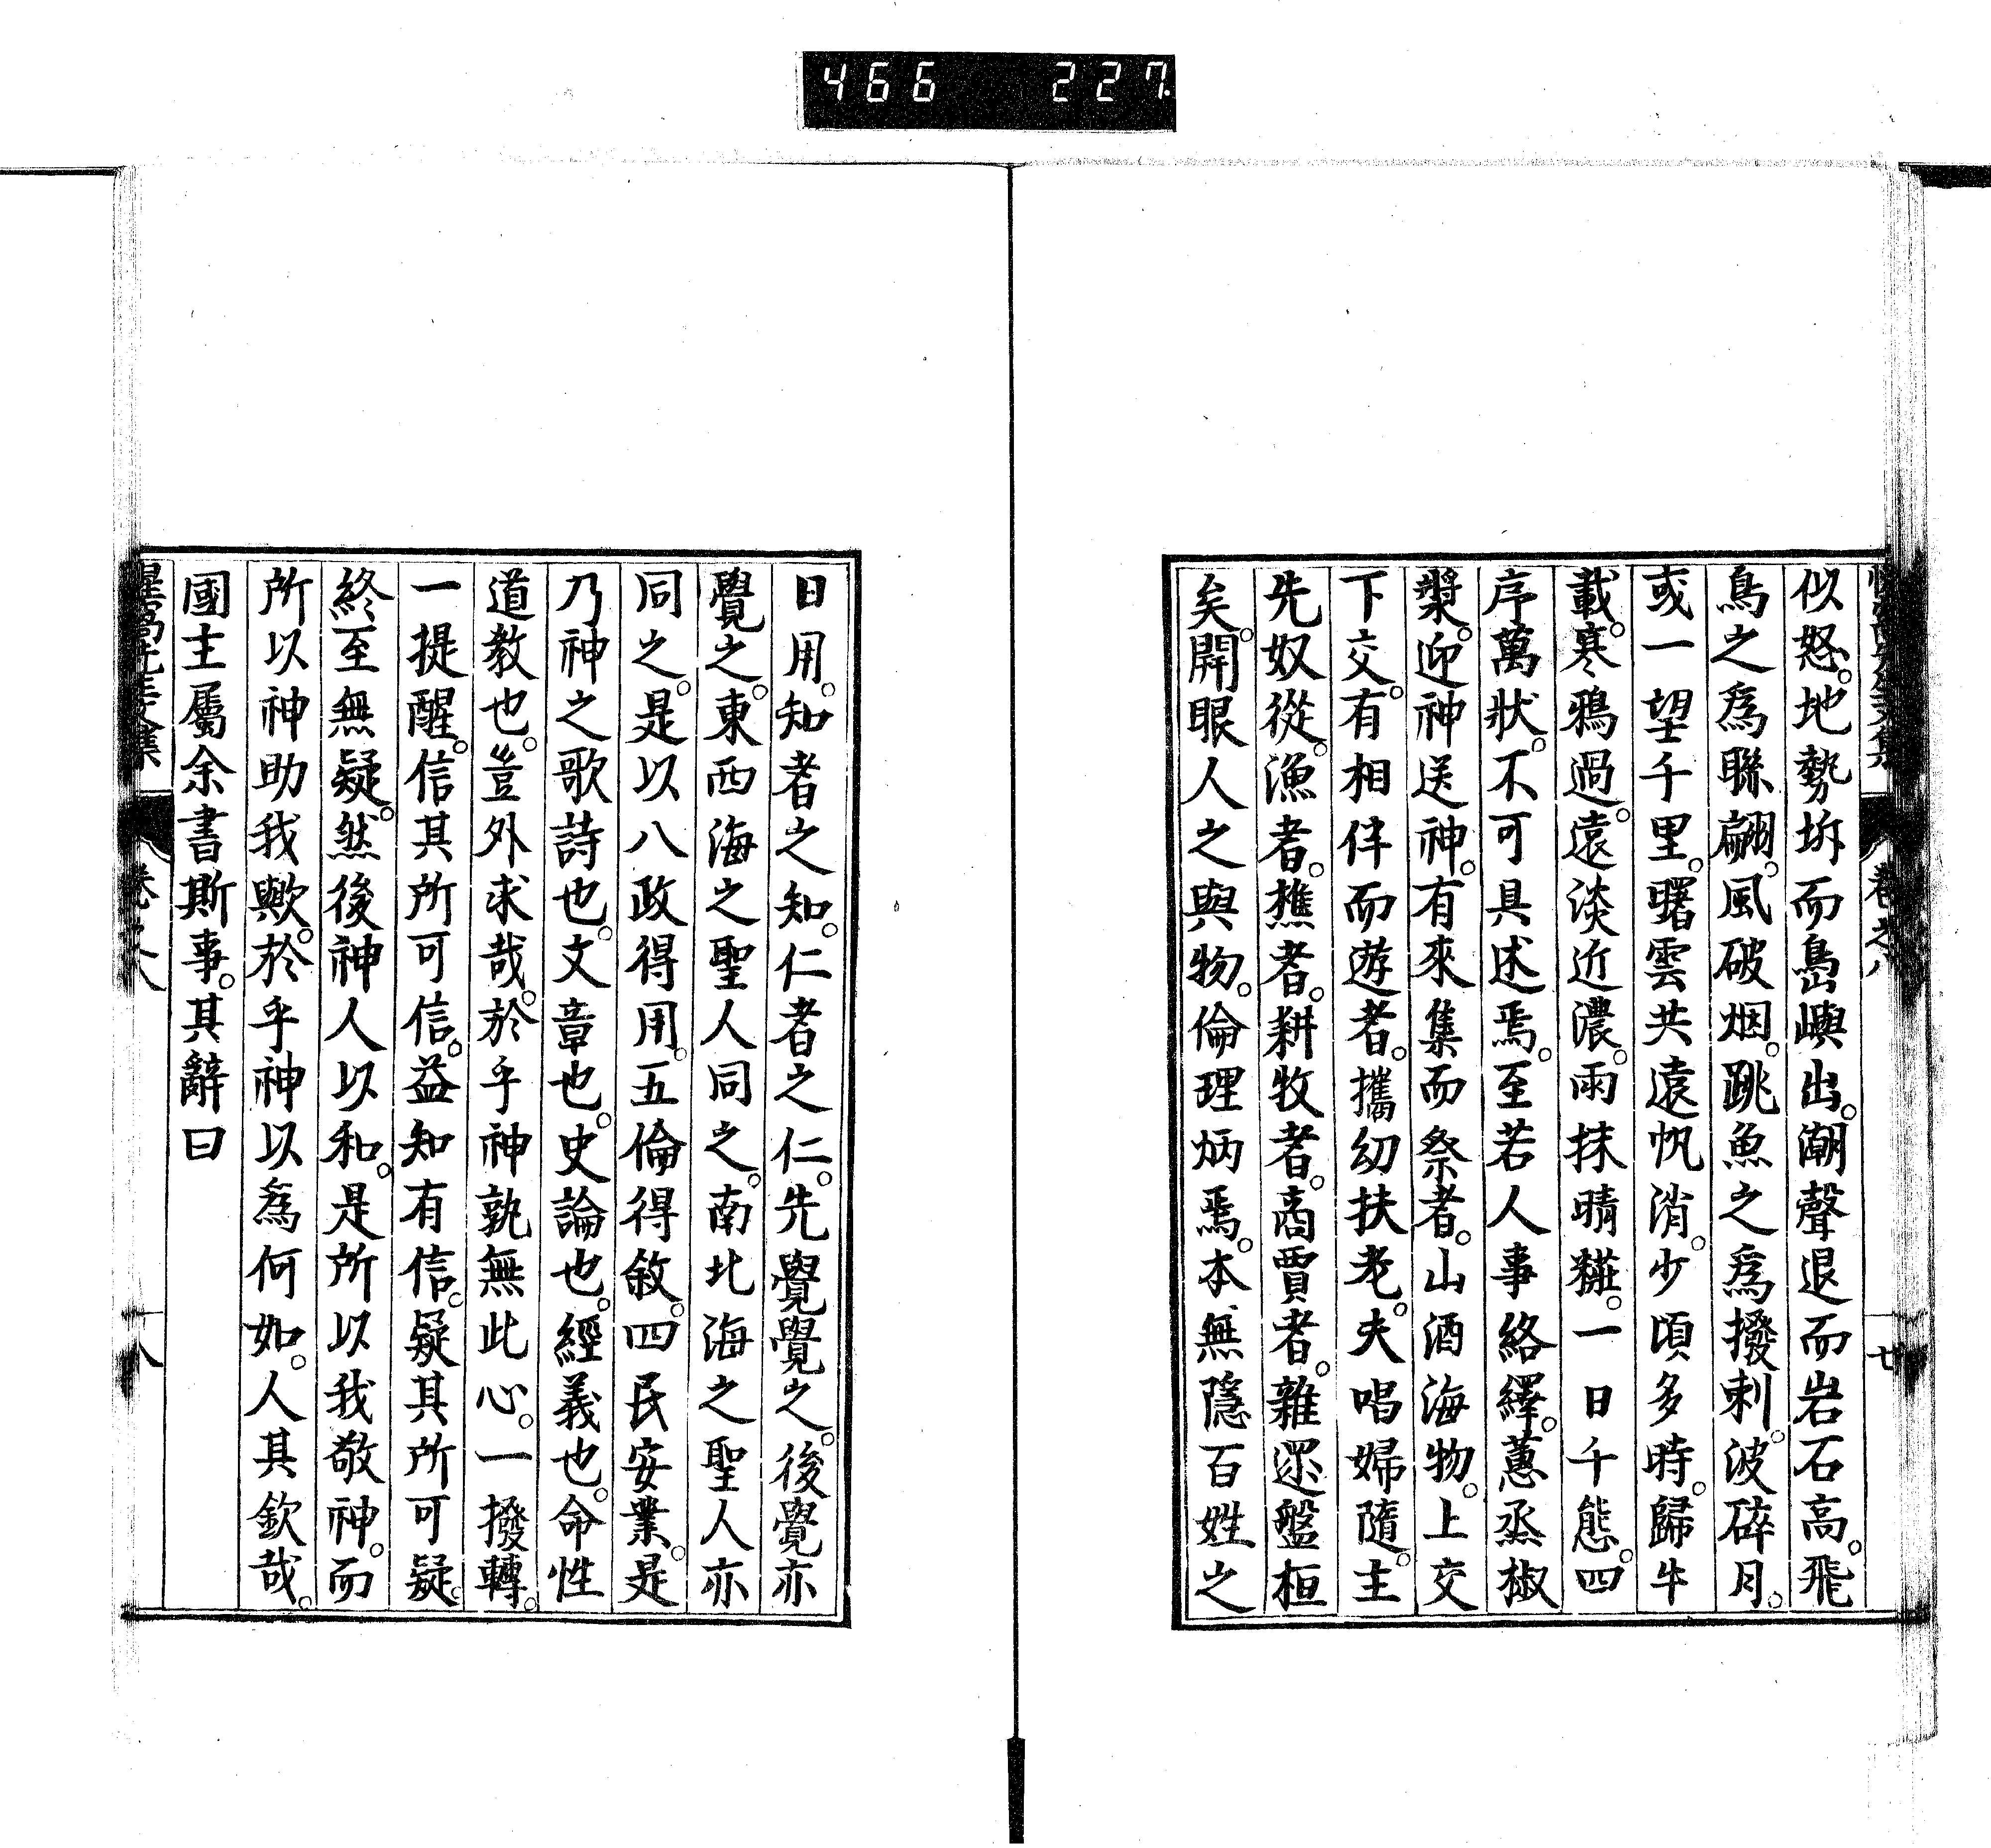 466 227
似怒。地勢坼而島嶼出。潮聲退而岩石高。飛
鳥之爲聯翩。風破烟。跳魚之爲撥剌。波碎月。
或一望千里。曙雲共遠帆消。少頃多時。歸牛
載。寒鴉過。遠淡近濃。雨抹晴糚。一日千態。四
序萬狀。不可具述焉。至若人事絡繹。蕙烝椒
漿。迎神送神。有來集而祭者。山酒海物。上交
下交。有相伴而遊者。攜幼扶老。夫唱婦隨。主
先奴從。漁者。樵者。耕牧者。商賈者。雜遝盤桓
矣。開眼人之與物。倫理炳焉。本無隱百姓之
日用。知者之知。仁者之仁。先覺覺之。後覺亦
覺之。東西海之聖人同之。南北海之聖人亦
同之。是以八政得用。五倫得敘。四民安業。是
乃神之歌詩也。文章也。史論也。經義也。命性
道教也。豈外求哉。於乎神孰無此心。一撥轉。
一提醒。信其所可信。益知有信。疑其所可疑。
終至無疑。然後神人以和。是所以我敬神。而
所以神助我歟。於乎神以爲何如。人其欽哉。
國主屬余書斯事。其辭曰
惺窩先生文集 卷之八 十八